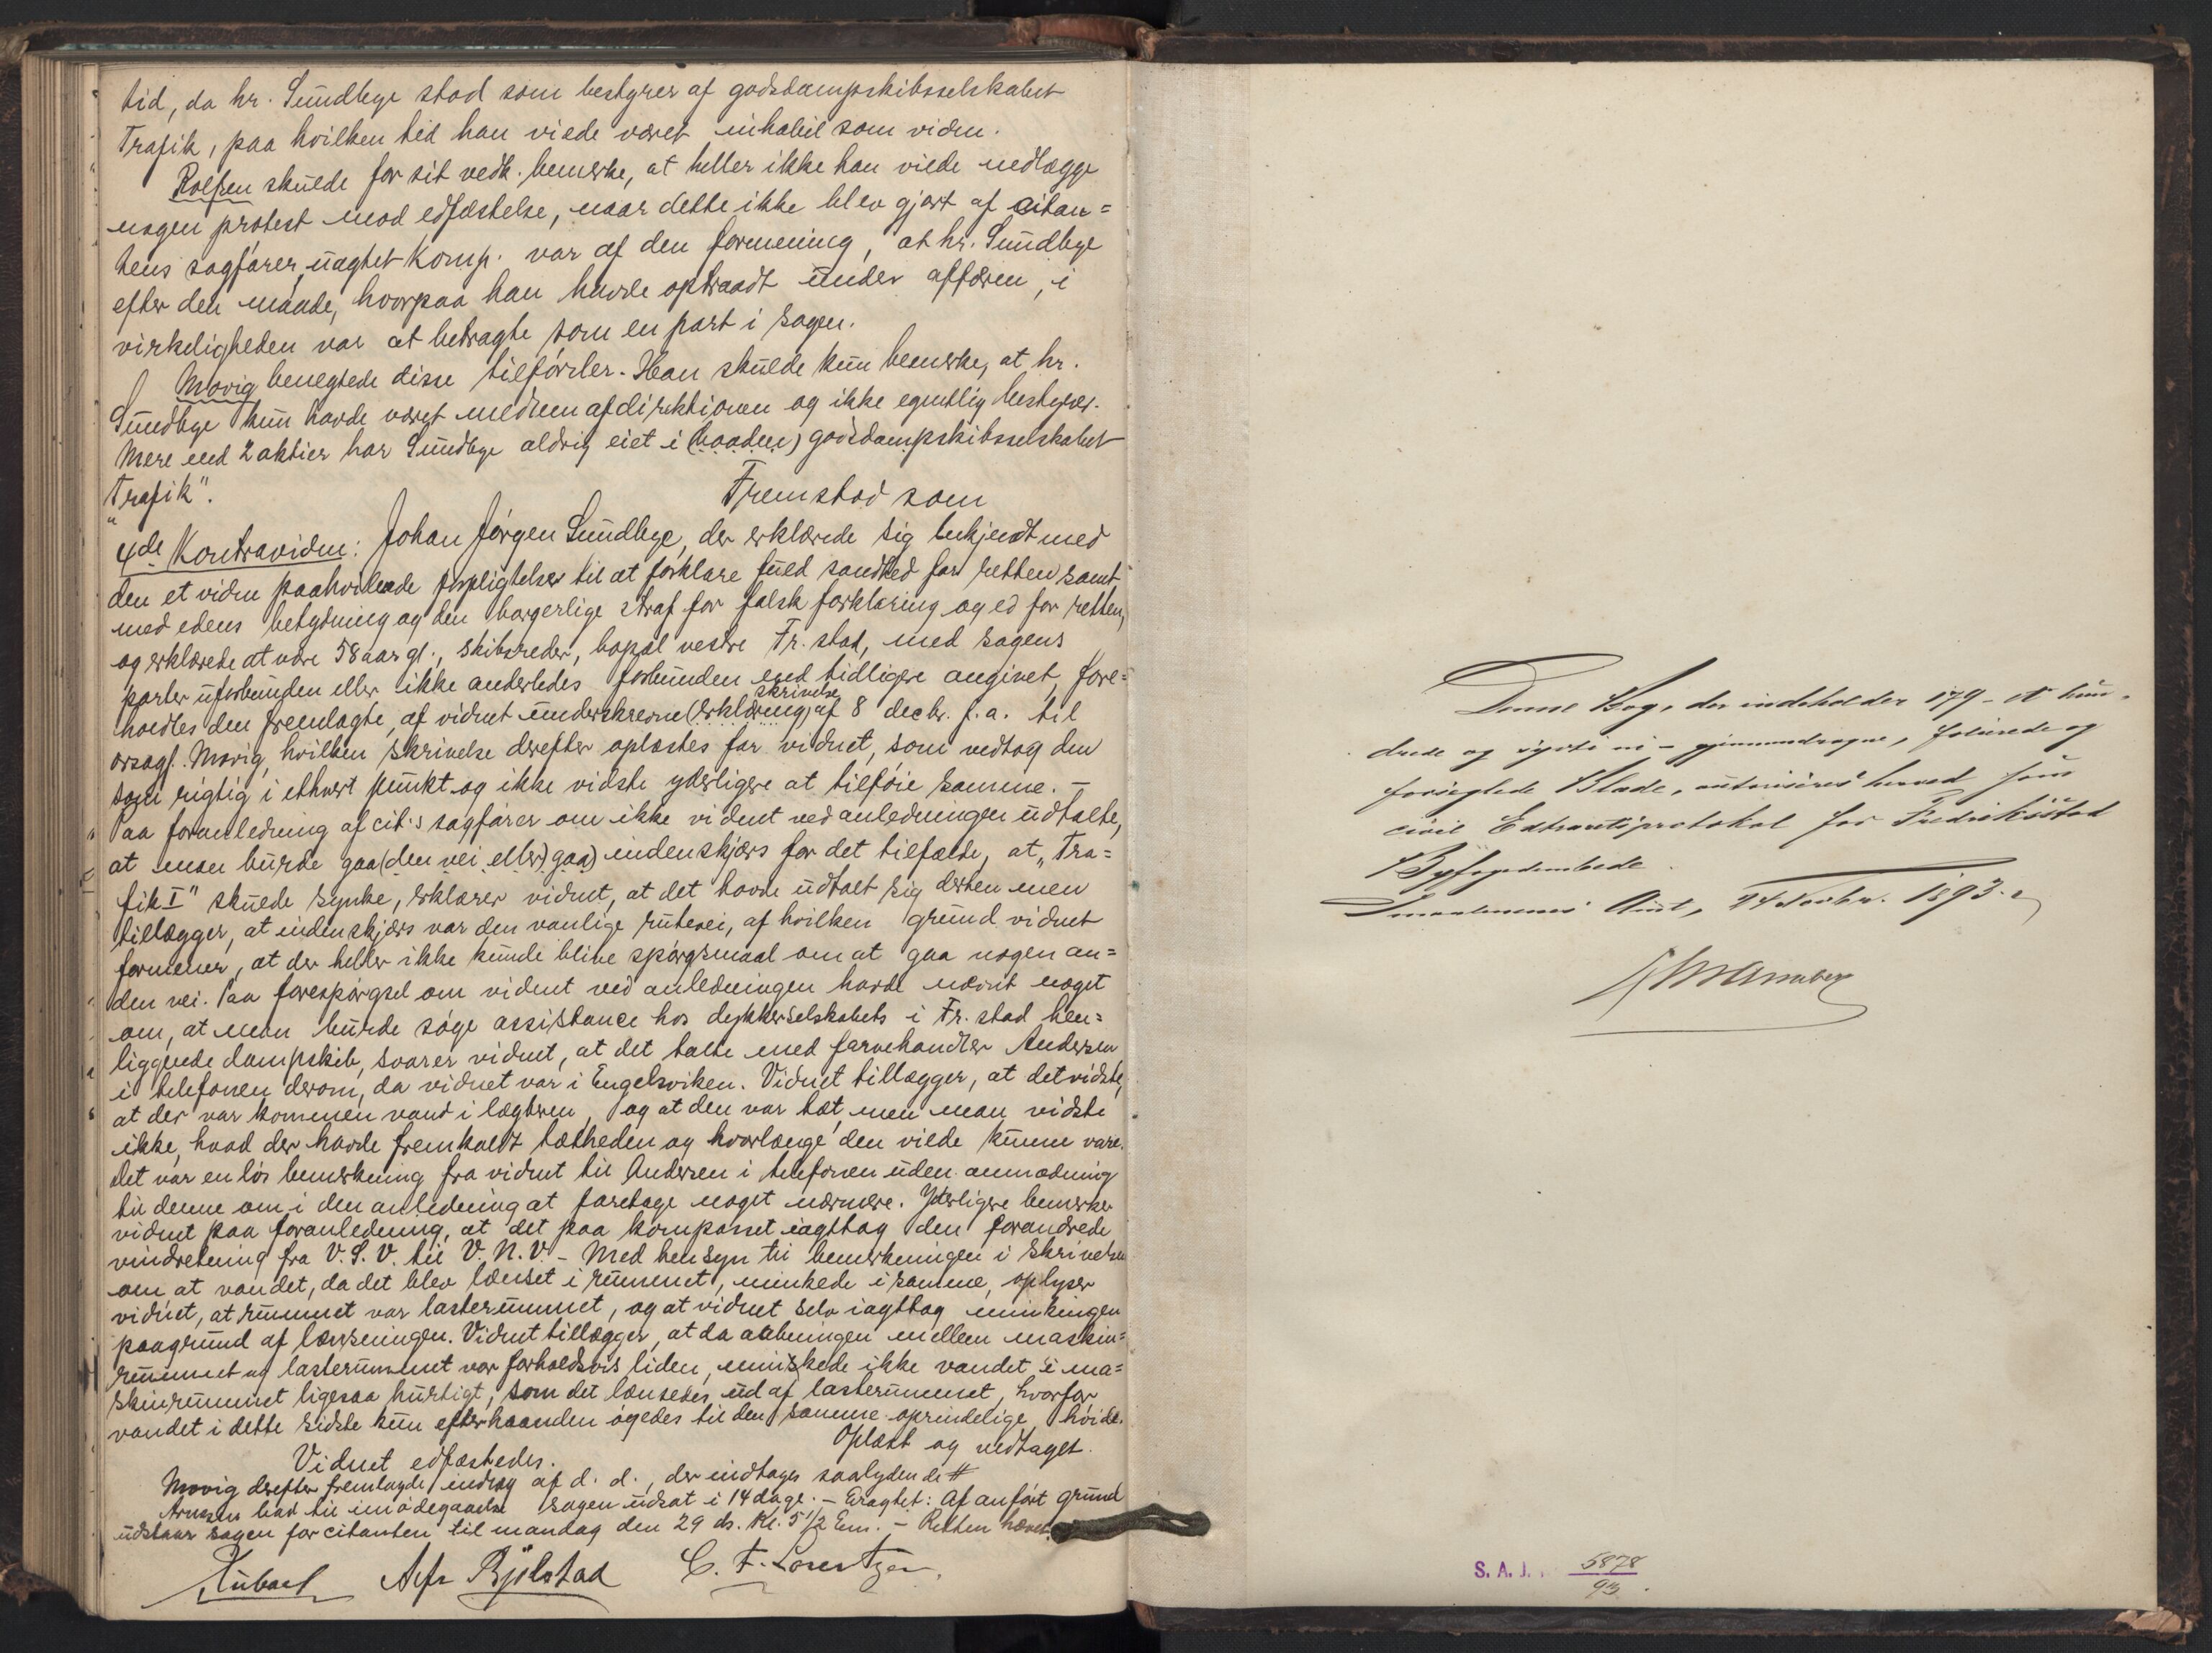 tid, da hr. Sundbye stod som bestyrer af godsdampskibsselskabet
Trafik, paa hvilken tid han vilde været inhabil som vidne.
Rolfsen skulde for sit vedk. bemerke, at heller ikke han vilde nedlægge
nogen protest mod edfæstelse, naar dette ikke blev gjort af citan=
tens sagfører, uagtet komp. var af den formening, at hr. Sundbye
efter den maade, hvorpaa han havde optraadt under affæren, i
virkeligheden var at betragte som en part i sagen.
Movig benegtede disse tilførsler. Han skulde kun bemerke, at hr.
Sundbye kun havde været medlem af direktionen og ikke egentlig bestyrer.
Mere end 2 aktier har Sundbye aldrig eiet i (baaden) godsdampskibsselskabet
"Trafik".
Fremstod som
4de Kontravidne: Johan Jörgen Sundbye, der erklærede sig bekjendt med
den et vidne paahvilende forpligtelser til at forklare fuld sandhed for retten samt
med edens betydning og den borgerlige straf for falsk forklaring og ed for retten,
og erklærede at være 58 aar gl., skibsreder, bopæl vestre Fr.stad, med sagens
parter uforbunden eller ikke anderledes forbunden end tidligere angivet, fore=
holdtes den fremlagte, af vidnet underskrevne (erklæring) skrivelse af 8 decbr. f.a. til
orsagf. Movig, hvilken skrivelse derefter oplæstes for vidnet, som vedtog den
som rigtig i ethvert punkt og ikke vidste yderligere at tilføie samme. –
Paa foranledning af cit.s sagfører om ikke vidnet ved anledningen udtalte,
at man burde gaa (den vei eller) gaa) indenskjærs for det tilfælde, at "Tra=
fik I" skulde synke, erklærer vidnet, at det havde udtalt sig derhen men
tillægger, at indenskjærs var den vanlige rutevei, af hvilken grund vidnet
formener, at der heller ikke kunde blive spørgsmaal om at gaa nogen an=
den vei. Paa forespørgsel om vidnet ved anledningen havde nævnt noget
om, at man burde søge assistance hos dykkerselskabets i Fr.stad hen=
liggende dampskib, svarer vidnet, at det talte med farvehandler Andersen
i telefonen derom, da vidnet var i Engelsviken. Vidnet tillægger, at det vidste,
at der var kommen vand i lægteren, og at den var tæt, men man vidste
ikke, hvad der havde fremkaldt tætheden og hvorlænge den vilde kunne vare.
Det var en løs bemerkning fra vidnet til Andersen i telefonen uden anmodning
til denne om i den anledning at foretage noget nærmere. Yderligere bemerker
vidnet paa foranledning, at det paa kompasset iagttog den forandrede
vindretning fra V.S.V. til V.N.V. – Med hensyn til bemerkningen i skrivelsen
om at vandet, da det blev lænset i rummet, minkede i samme, oplyser
vidnet, at rummet var lasterummet, og at vidnet selv iagttog minkingen
paagrund af lænsningen. Vidnet tillægger, at da aabningen mellem maskin=
rummet og lasterummet var forholdsvis liden, minskede ikke vandet i ma=
skinrummet ligesaa hurtigt, som det lænsedes ud af lasterummet, hvorfor
vandet i dette sidste kun efterhaanden øgedes til den samme oprindelige høide.
Oplæst og vedtaget.
Vidnet edfæstedes.
Movig derefter fremlagde indlæg af d. d., der indtages saalydende #
Arnesen bad til imødegaaelse sagen udsat i 14 dage. – Eragtet: Af anført grund
udstaar sagen for citanten til mandag den 29 ds. Kl. 5 1/2 Em. – Retten hævet.
Alfr Bjølstad C. F. Lorentzen.
Denne Bog, der indeholder 179 – et hun-
drede og sytti ni – gjennemdragne, folierede og
forseglede Blade, autoriseres herved som
civil Extraretsprotokol for Fredriksstad
Byfogdembede.
Smaalenenes Amt, 24 Novbr. 1893.
S. A. J. 5878
93.